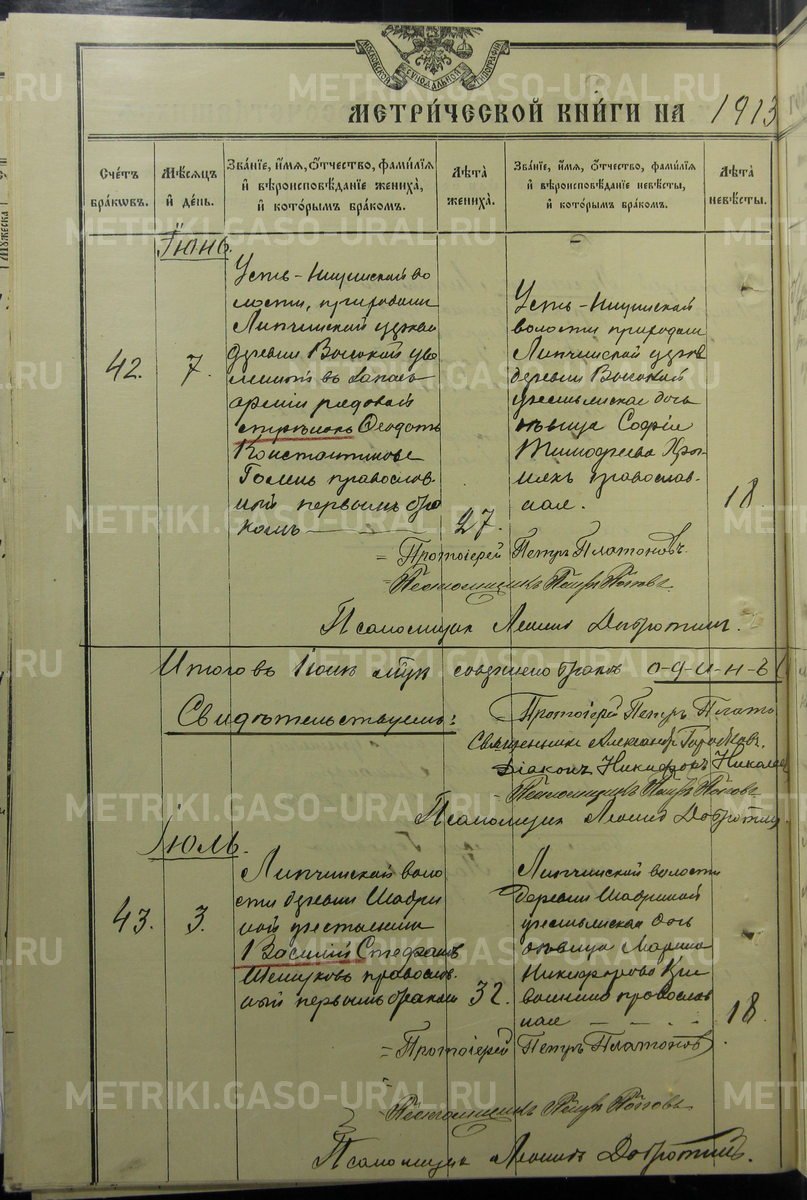 МОСКОВСКОЙ СѴНОДАЛЬНОЙ ТИПОГРАФІИ
МЕТРИ́ЧЕСКОЙ КНИ́ГИ НА 1913
Сче́тъ бра́ковъ.
Мѣ́сяцъ и҆ де́нь.
Зва́нїе, и҆́мѧ, ѻ҆́тчество, фами́лїѧ и҆ вѣроисповѣ́данїе жениха̀, и҆ кото́рымъ бра́комъ.
Лѣ́та жениха̀.
Зва́нїе, и҆́мѧ, ѻ҆́тчество, фами́лїѧ и҆ вѣроисповѣ́данїе невѣ́сты, и҆ кото́рымъ бра́комъ.
Лѣ́та невѣ́сты.
Іюнь.
42.
7.
Усть-Ницинской во
лости,
Липчинской
деревни Высокой уво
ленный въ запасъ
арміи рядовой
стрѣлокъ Ѳеодотъ
Константиновъ
православ
ный первымъ бра
комъ
27.
Усть-Ницинской
волости
Липчинской
деревни Высокой
крестьянская дочь
дѣвица Софія
Тимофеева
православ-
ная.
18.
Протоіерей Петръ Платоновъ.
Псаломщикъ Петръ Поповъ
Псаломщикъ Леонидъ Добротинъ.
Итого въ Іюнѣ мцѣ совершено браковъ о-д-и-н-ъ (
Свидѣтельствуемъ:
Протоіерей Петръ Плато
Священникъ Александръ
Діаконъ Никифоръ Николаев
Псаломщикъ Петръ Поповъ
Псаломщикъ Леонидъ Добротин
Іюль.
43.
3.
Липчинской воло
сти деревни Шабри
ной крестьянинъ
Василій Стефановъ
православ-
ный первымъ бракомъ
32.
Липчинской волости
деревни Шабриной
крестьянская дочь
дѣвица Марина
Никифорова
православ
ная
18.
Протоіерей Петръ Платоновъ
Псаломщикъ Петръ Поповъ
Псаломщикъ Леонидъ Добротинъ.
METRIKI.GASO-URAL.RU